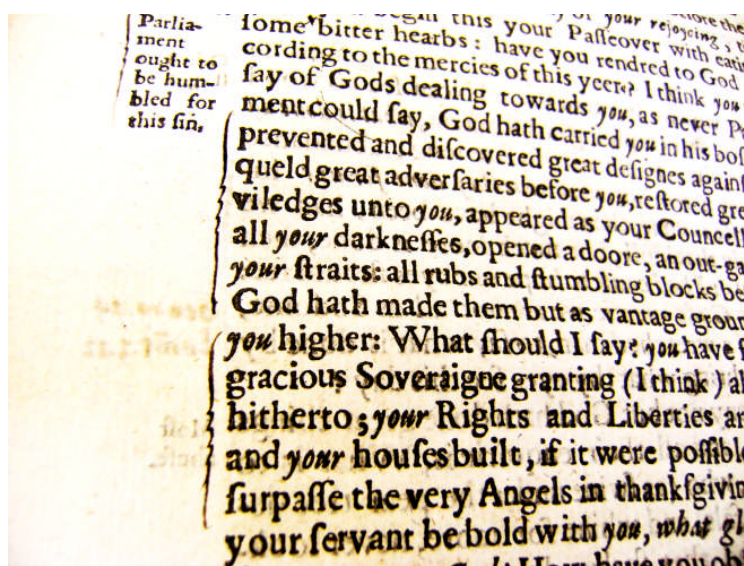 Parlia-
ment
ought to
be hum-
bled for
this sin.
begin this your Paſſeover with
ſome bitter hearbs : have you rendred to God
cording to the mercies of this yeere? I think you
ſay of Gods dealing towards you, as never
ment could ſay, God hath carried you in his
prevented and diſcovered great deſignes
queld great adverſaries before you, reſtored
viledges unto you, appeared as your
all your darkneſſes, opened a doore, an
your ſtraits: all rubs and ſtumbling blocks
God hath made them but as vantage
you higher: What ſhould I ſay? you have
gracious Soveraigne granting (I think)
hitherto; your Rights and Liberties
and your houſes built, if it were
ſurpaſſe the very Angels in
your ſervant be bold with you, what
How have you